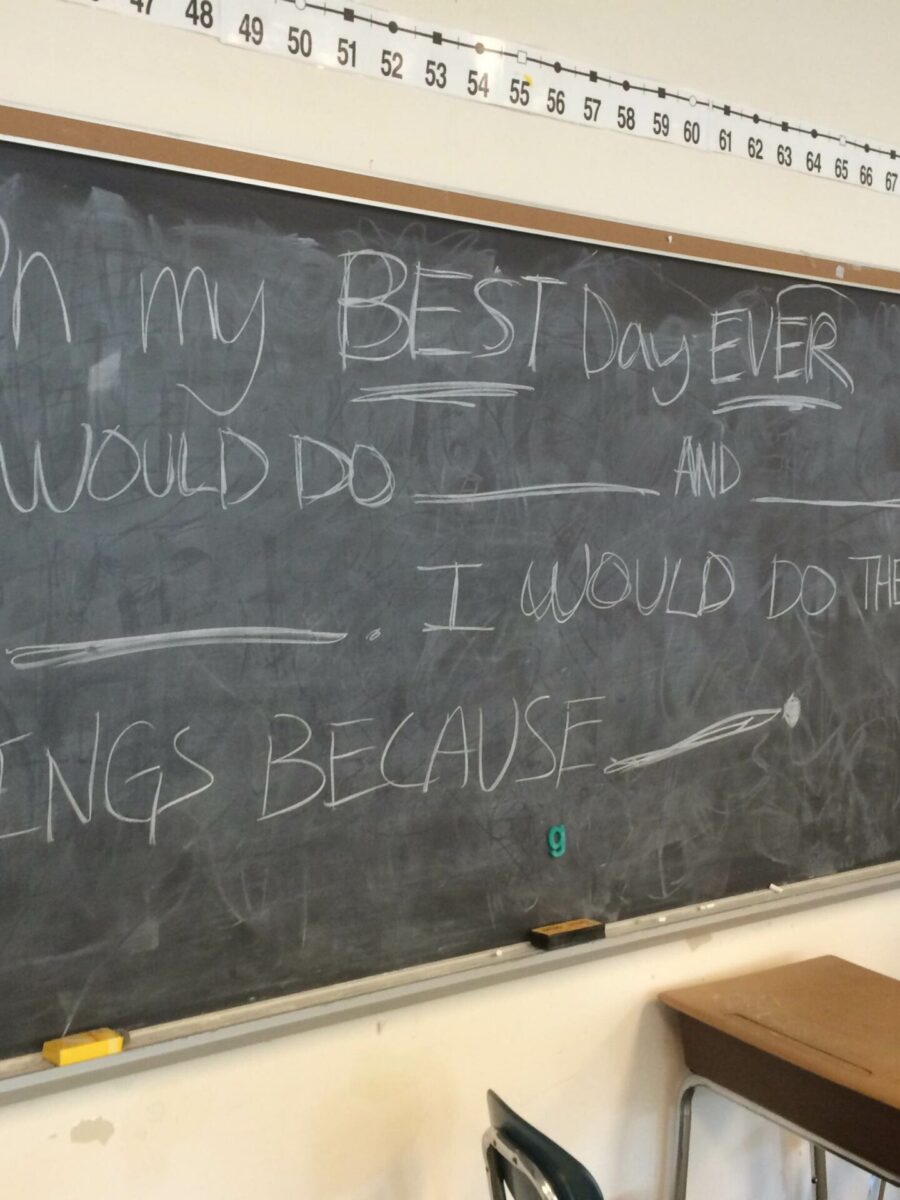 47 48 49 50 51 52 53 54 55 56 57 58 59 60 61 62 63 64 65 66 67
On my BEST Day EVER
WOULD DO ______ AND ______
______. I WOULD DO THE
INGS BECAUSE ______.
g